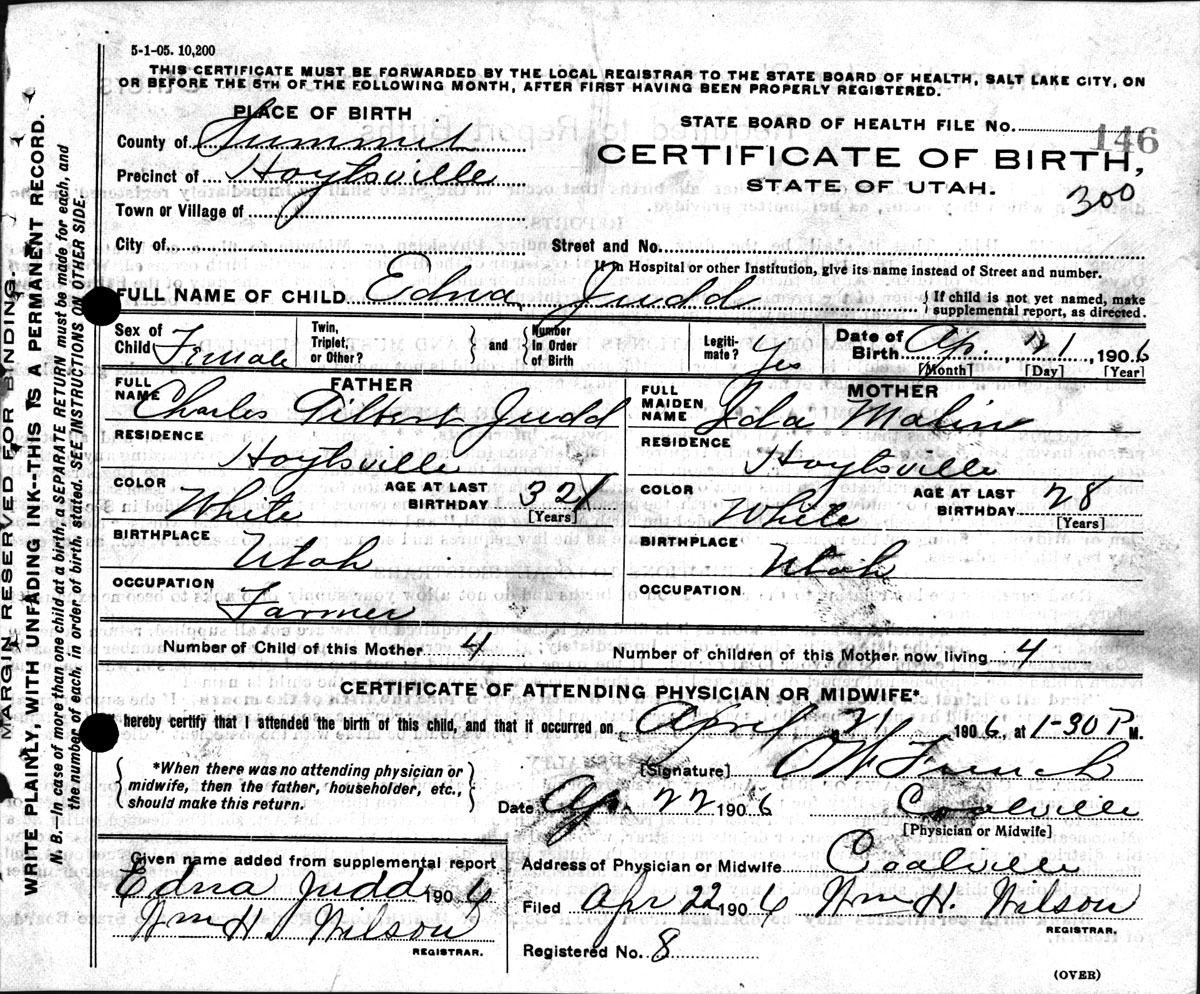 5-1-05. 10,200
THIS CERTIFICATE MUST BE FORWARDED BY THE LOCAL REGISTRAR TO THE STATE BOARD OF HEALTH, SALT LAKE CITY, ON
OR BEFORE THE 5TH OF THE FOLLOWING MONTH, AFTER FIRST HAVING BEEN PROPERLY REGISTERED.
PLACE OF BIRTH
County of Summit
Precinct of Hoytsville
Town or Village of
City of
STATE BOARD OF HEALTH FILE NO. 146
CERTIFICATE OF BIRTH,
STATE OF UTAH.
300
Street and No.
If in Hospital or other Institution, give its name instead of Street and number.
FULL NAME OF CHILD Edna Judd { If child is not yet named, make supplemental report, as directed.
Sex of Child Female
Twin, Triplet, or Other? } and { Number In Order of Birth
Legitimate? Yes
Date of Birth Ap. 21, 1906
[Month] [Day] [Year]
FATHER
FULL NAME Charles Tilbert Judd
RESIDENCE Hoytsville
COLOR White
AGE AT LAST BIRTHDAY 32
[Years]
BIRTHPLACE Utah
OCCUPATION Farmer
MOTHER
FULL MAIDEN NAME Ida Malin
RESIDENCE Hoytsville
COLOR White
AGE AT LAST BIRTHDAY 28
[Years]
BIRTHPLACE Utah
OCCUPATION
Number of Child of this Mother 4
Number of children of this Mother now living 4
CERTIFICATE OF ATTENDING PHYSICIAN OR MIDWIFE*
I hereby certify that I attended the birth of this child, and that it occurred on April 21 1906, at 1-30 P M.
*When there was no attending physician or
midwife, then the father, householder, etc.,
should make this return.
[Signature] O W French
Date Ap. 22 1906 Coalville
[Physician or Midwife]
Given name added from supplemental report
Edna Judd 1906
Wm H. Wilson
REGISTRAR.
Address of Physician or Midwife Coalville
Filed Apr 22 1906 Wm H. Wilson
REGISTRAR.
Registered No. 8
(OVER)
MARGIN RESERVED FOR BINDING.
WRITE PLAINLY, WITH UNFADING INK--THIS IS A PERMANENT RECORD.
N. B.--In case of more than one child at a birth, a SEPARATE RETURN must be made for each, and
the number of each, in order of birth, stated. SEE INSTRUCTIONS ON OTHER SIDE.